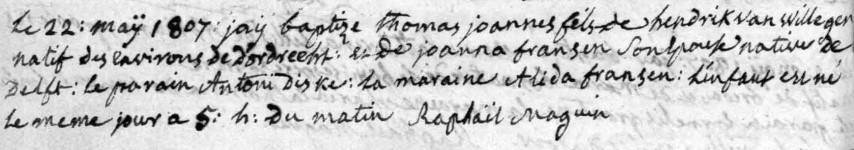 Le 22: maÿ 1807: jaij baptize thomas joannes fils de hendrik van willegen
natif des environs de dordrecht: et de joanna fransen son epouse native de
Delft: le parain Antoni diske: la maraine Alida fransen: L'infant est né
le meme jour a 5: h: du matin Raphaël Maguin